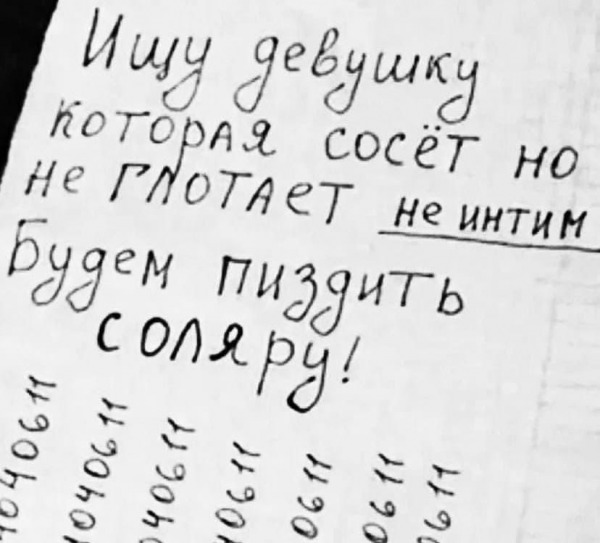 Ищу девушку
которая сосёт но
не глотает не интим
Будем пиздить
соляру!
1040611
1040611
040611
40611
0611
0611
0611